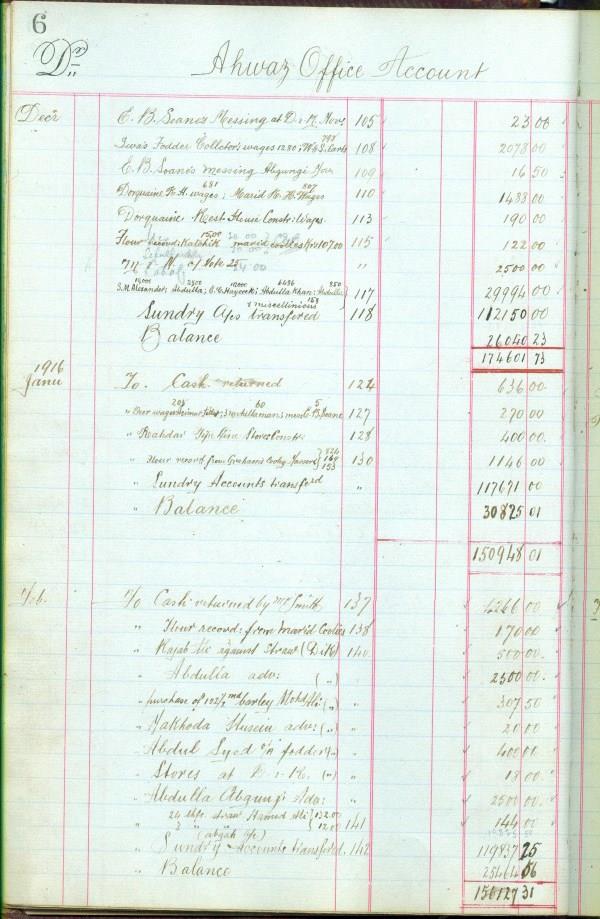 6
Dr Ahwaz Office Account
Decr E. B. Soane's Messing at D.i.K. Novr 105 23 00
Fodder Collector's wages 1280; 798 108 2078 00
E. B. Soane's messing Abgungi 109 16 50
Dorquaine R. H. wages 681; Marid R. H. Wages 807 110 1488 00
Dorquaine Rest House Constr: Wages 113 190 00
Flour record: 1500 marid coolies Krs 107.00 115 122 00
" " 2500 00
S. M. Alexander; Abdulla; Haycock; Abdulla Khan; Abdulla 850 117 29994 00
& miscellinious 158
Sundry A/cs transfered 118 112150 00
Balance 26040 23
174601 73
1916
Janu To Cash returned 124 636 00
208 60 5
" Over wages 127 270 00
" Rahdar Pipe line Stores Constr 128 400 00
" Flour record from Graham's Cooly 824 169 153 130 1146 00
" Sundry Accounts transferd " 117671 00
" Balance 30825 01
150948 01
Feb. To Cash returned by Mr Smith 137 4266 00
" Flour record: from Marid Coolies 138 170 00
" Rajab Ali against Straw (D.i.K) 140 500 00
" Abdulla adv: (") " 2500 00
" purchase of 102½ md barley Mohd Ali (") " 307 50
" Nakhoda Husein adv: (") " 20 00
" Abdul Syed o/a fodder (") " 400 00
" Stores at D.i.K. (") " 18 00
" Abdulla Abgungi Adv: " 2500 00
" 24 straw Hamed Ali 132.00
" 3 " (abgah) 12.00 141 144 00
" Sundry Accounts transfered. 142 119837 25
" Balance 25464 56
156127 31